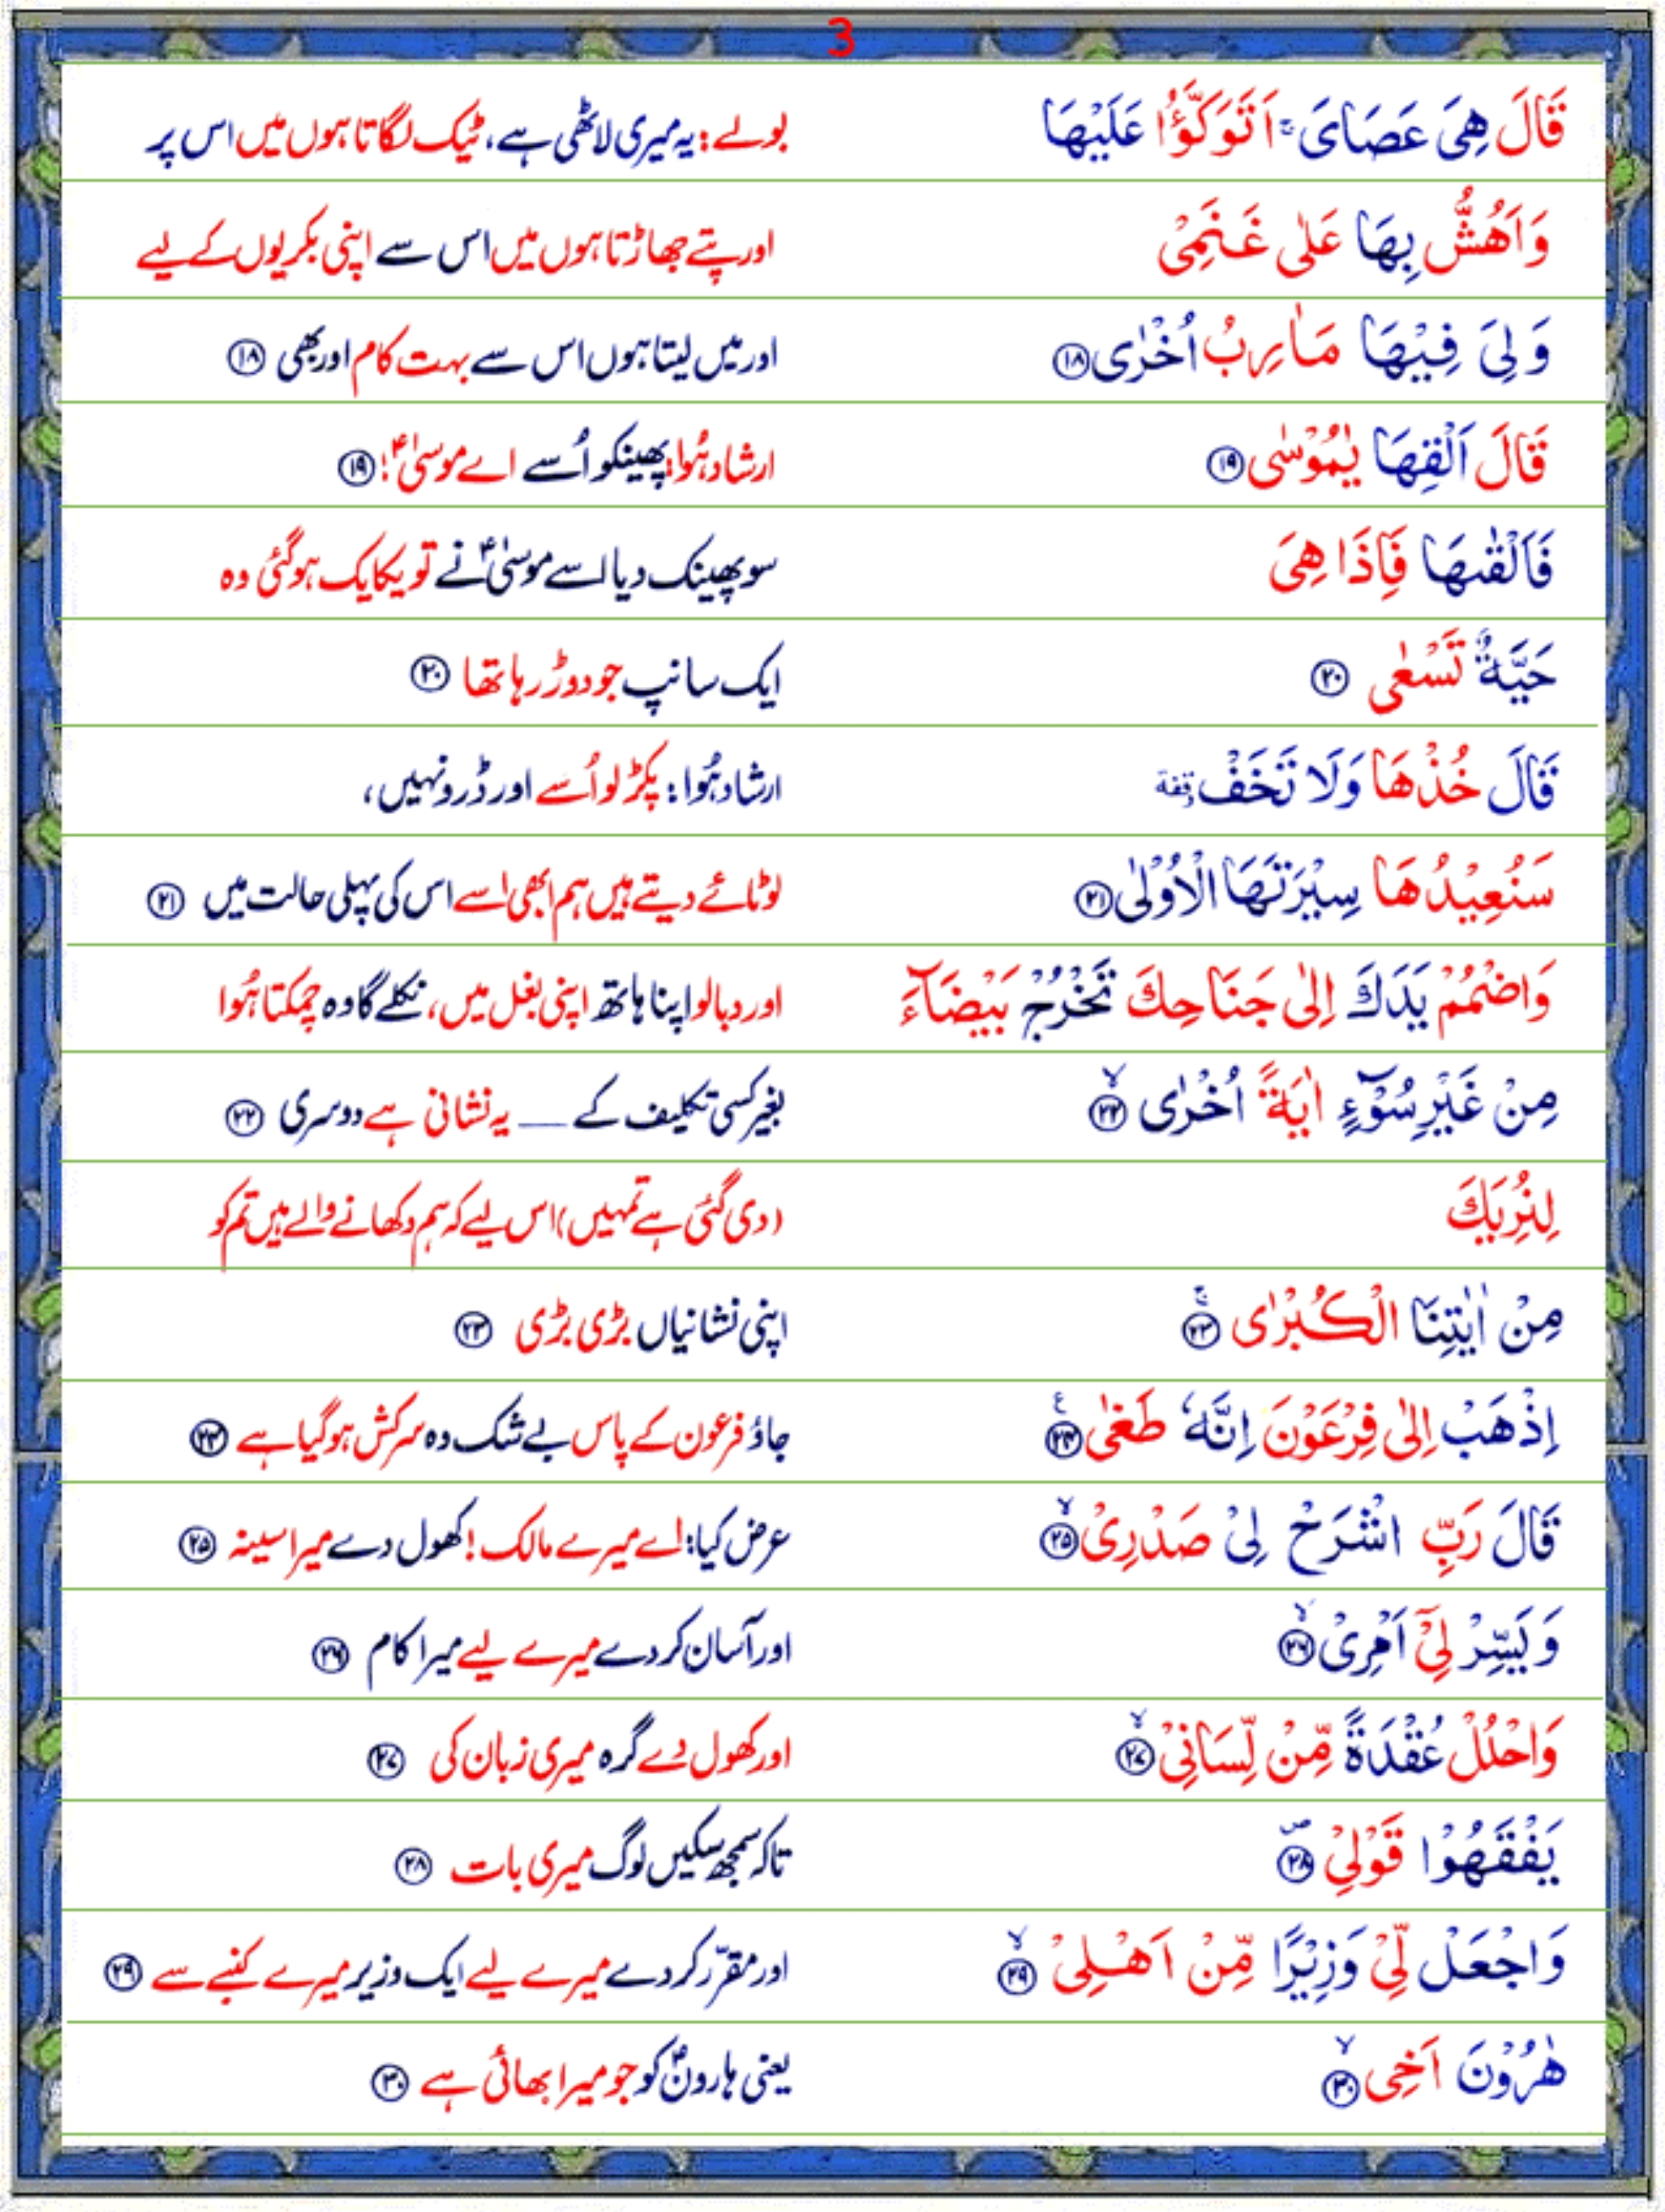 3
قَالَ هِىَ عَصَاىَ ۚ اَتَوَكَّؤُا عَلَيْهَا بولے: یہ میری لاٹھی ہے، ٹیک لگاتا ہوں میں اس پر
وَاَهُشُّ بِهَا عَلٰى غَنَمِىْ اور پتے جھاڑتا ہوں میں اس سے اپنی بکریوں کے لیے
وَ لِىَ فِيْهَا مَاٰرِبُ اُخْرٰى ۱۸ اور میں لیتا ہوں اس سے بہت کام اور بھی ۱۸
قَالَ اَلْقِهَا يٰمُوْسٰى ۱۹ ارشاد ہُوا: پھینکو اُسے اے موسیٰؑ! ۱۹
فَاَلْقٰىهَا فَاِذَا هِىَ سو پھینک دیا اسے موسیٰؑ نے تو یکایک ہوگئی وہ
حَيَّةٌ تَسْعٰى ۲۰ ایک سانپ جو دوڑ رہا تھا ۲۰
قَالَ خُذْهَا وَلَا تَخَفْ وقفة ارشاد ہُوا: پکڑ لو اُسے اور ڈرو نہیں،
سَنُعِيْدُهَا سِيْرَتَهَا الْاُوْلٰى ۲۱ لوٹائے دیتے ہیں ہم ابھی اسے اس کی پہلی حالت میں ۲۱
وَاضْمُمْ يَدَكَ اِلٰى جَنَاحِكَ تَخْرُجْ بَيْضَآءَ اور دبالو اپنا ہاتھ اپنی بغل میں، نکلے گا وہ چمکتا ہُوا
مِنْ غَيْرِ سُوْٓءٍ اٰيَةً اُخْرٰى ۙ ۲۲ بغیر کسی تکلیف کے ـــ یہ نشانی ہے دوسری ۲۲
لِنُرِيَكَ (دی گئی ہے تمہیں) اس لیے کہ ہم دکھانے والے ہیں تم کو
مِنْ اٰيٰتِنَا الْكُبْرٰى ۚ ۲۳ اپنی نشانیاں بڑی بڑی ۲۳
اِذْهَبْ اِلٰى فِرْعَوْنَ اِنَّهٗ طَغٰى ۲۴ ع جاؤ فرعون کے پاس بے شک وہ سرکش ہوگیا ہے ۲۴
قَالَ رَبِّ اشْرَحْ لِىْ صَدْرِىْ ۙ ۲۵ عرض کیا: اے میرے مالک! کھول دے میرا سینہ ۲۵
وَيَسِّرْ لِىْٓ اَمْرِىْ ۙ ۲۶ اور آسان کردے میرے لیے میرا کام ۲۶
وَاحْلُلْ عُقْدَةً مِّنْ لِّسَانِىْ ۙ ۲۷ اور کھول دے گرہ میری زبان کی ۲۷
يَفْقَهُوْا قَوْلِىْ ۪ ۲۸ تاکہ سمجھ سکیں لوگ میری بات ۲۸
وَاجْعَلْ لِّىْ وَزِيْرًا مِّنْ اَهْلِىْ ۙ ۲۹ اور مقرّر کردے میرے لیے ایک وزیر میرے کنبے سے ۲۹
هٰرُوْنَ اَخِى ۙ ۳۰ یعنی ہارونؑ کو جو میرا بھائی ہے ۳۰